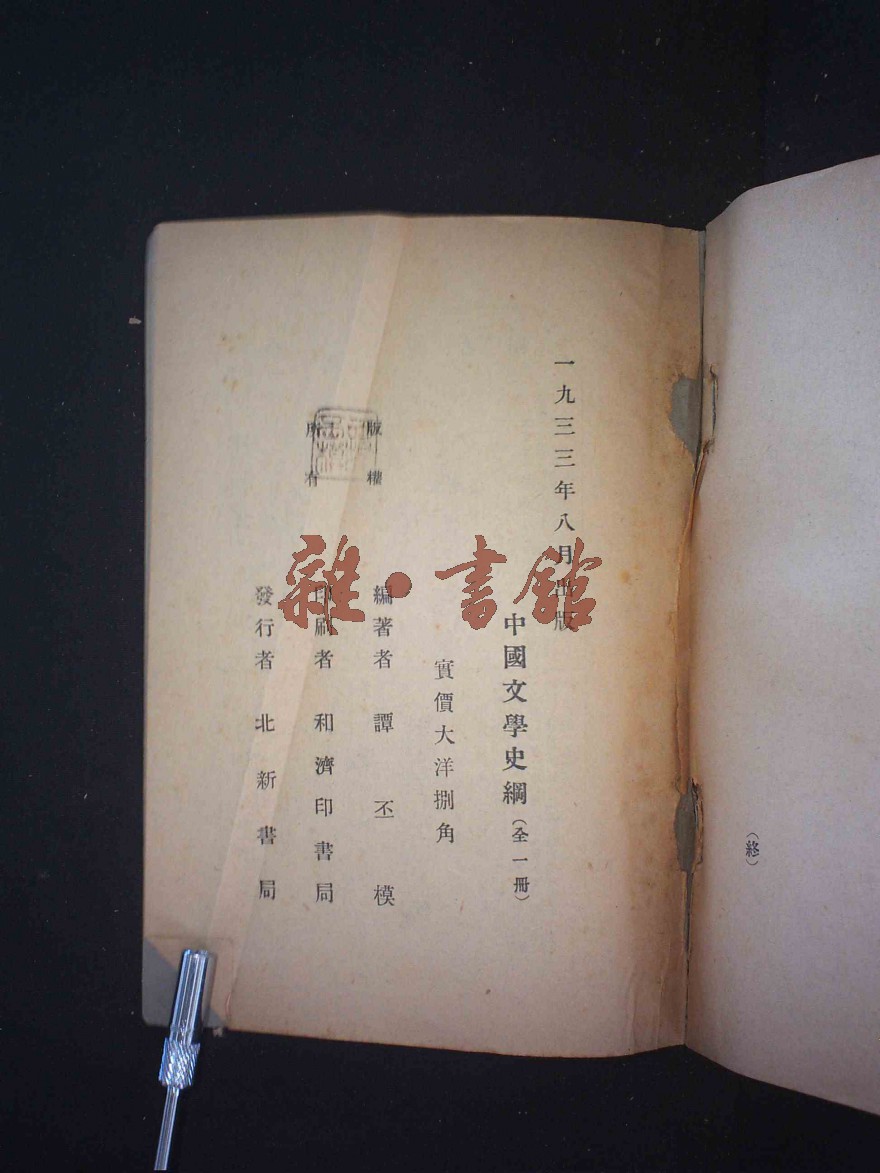 (終)
一九三三年八月出版
中國文學史綱(全一冊)
實價大洋捌角
版權
所有
編著者 譚丕模
印刷者 和濟印書局
發行者 北新書局
雜·書館